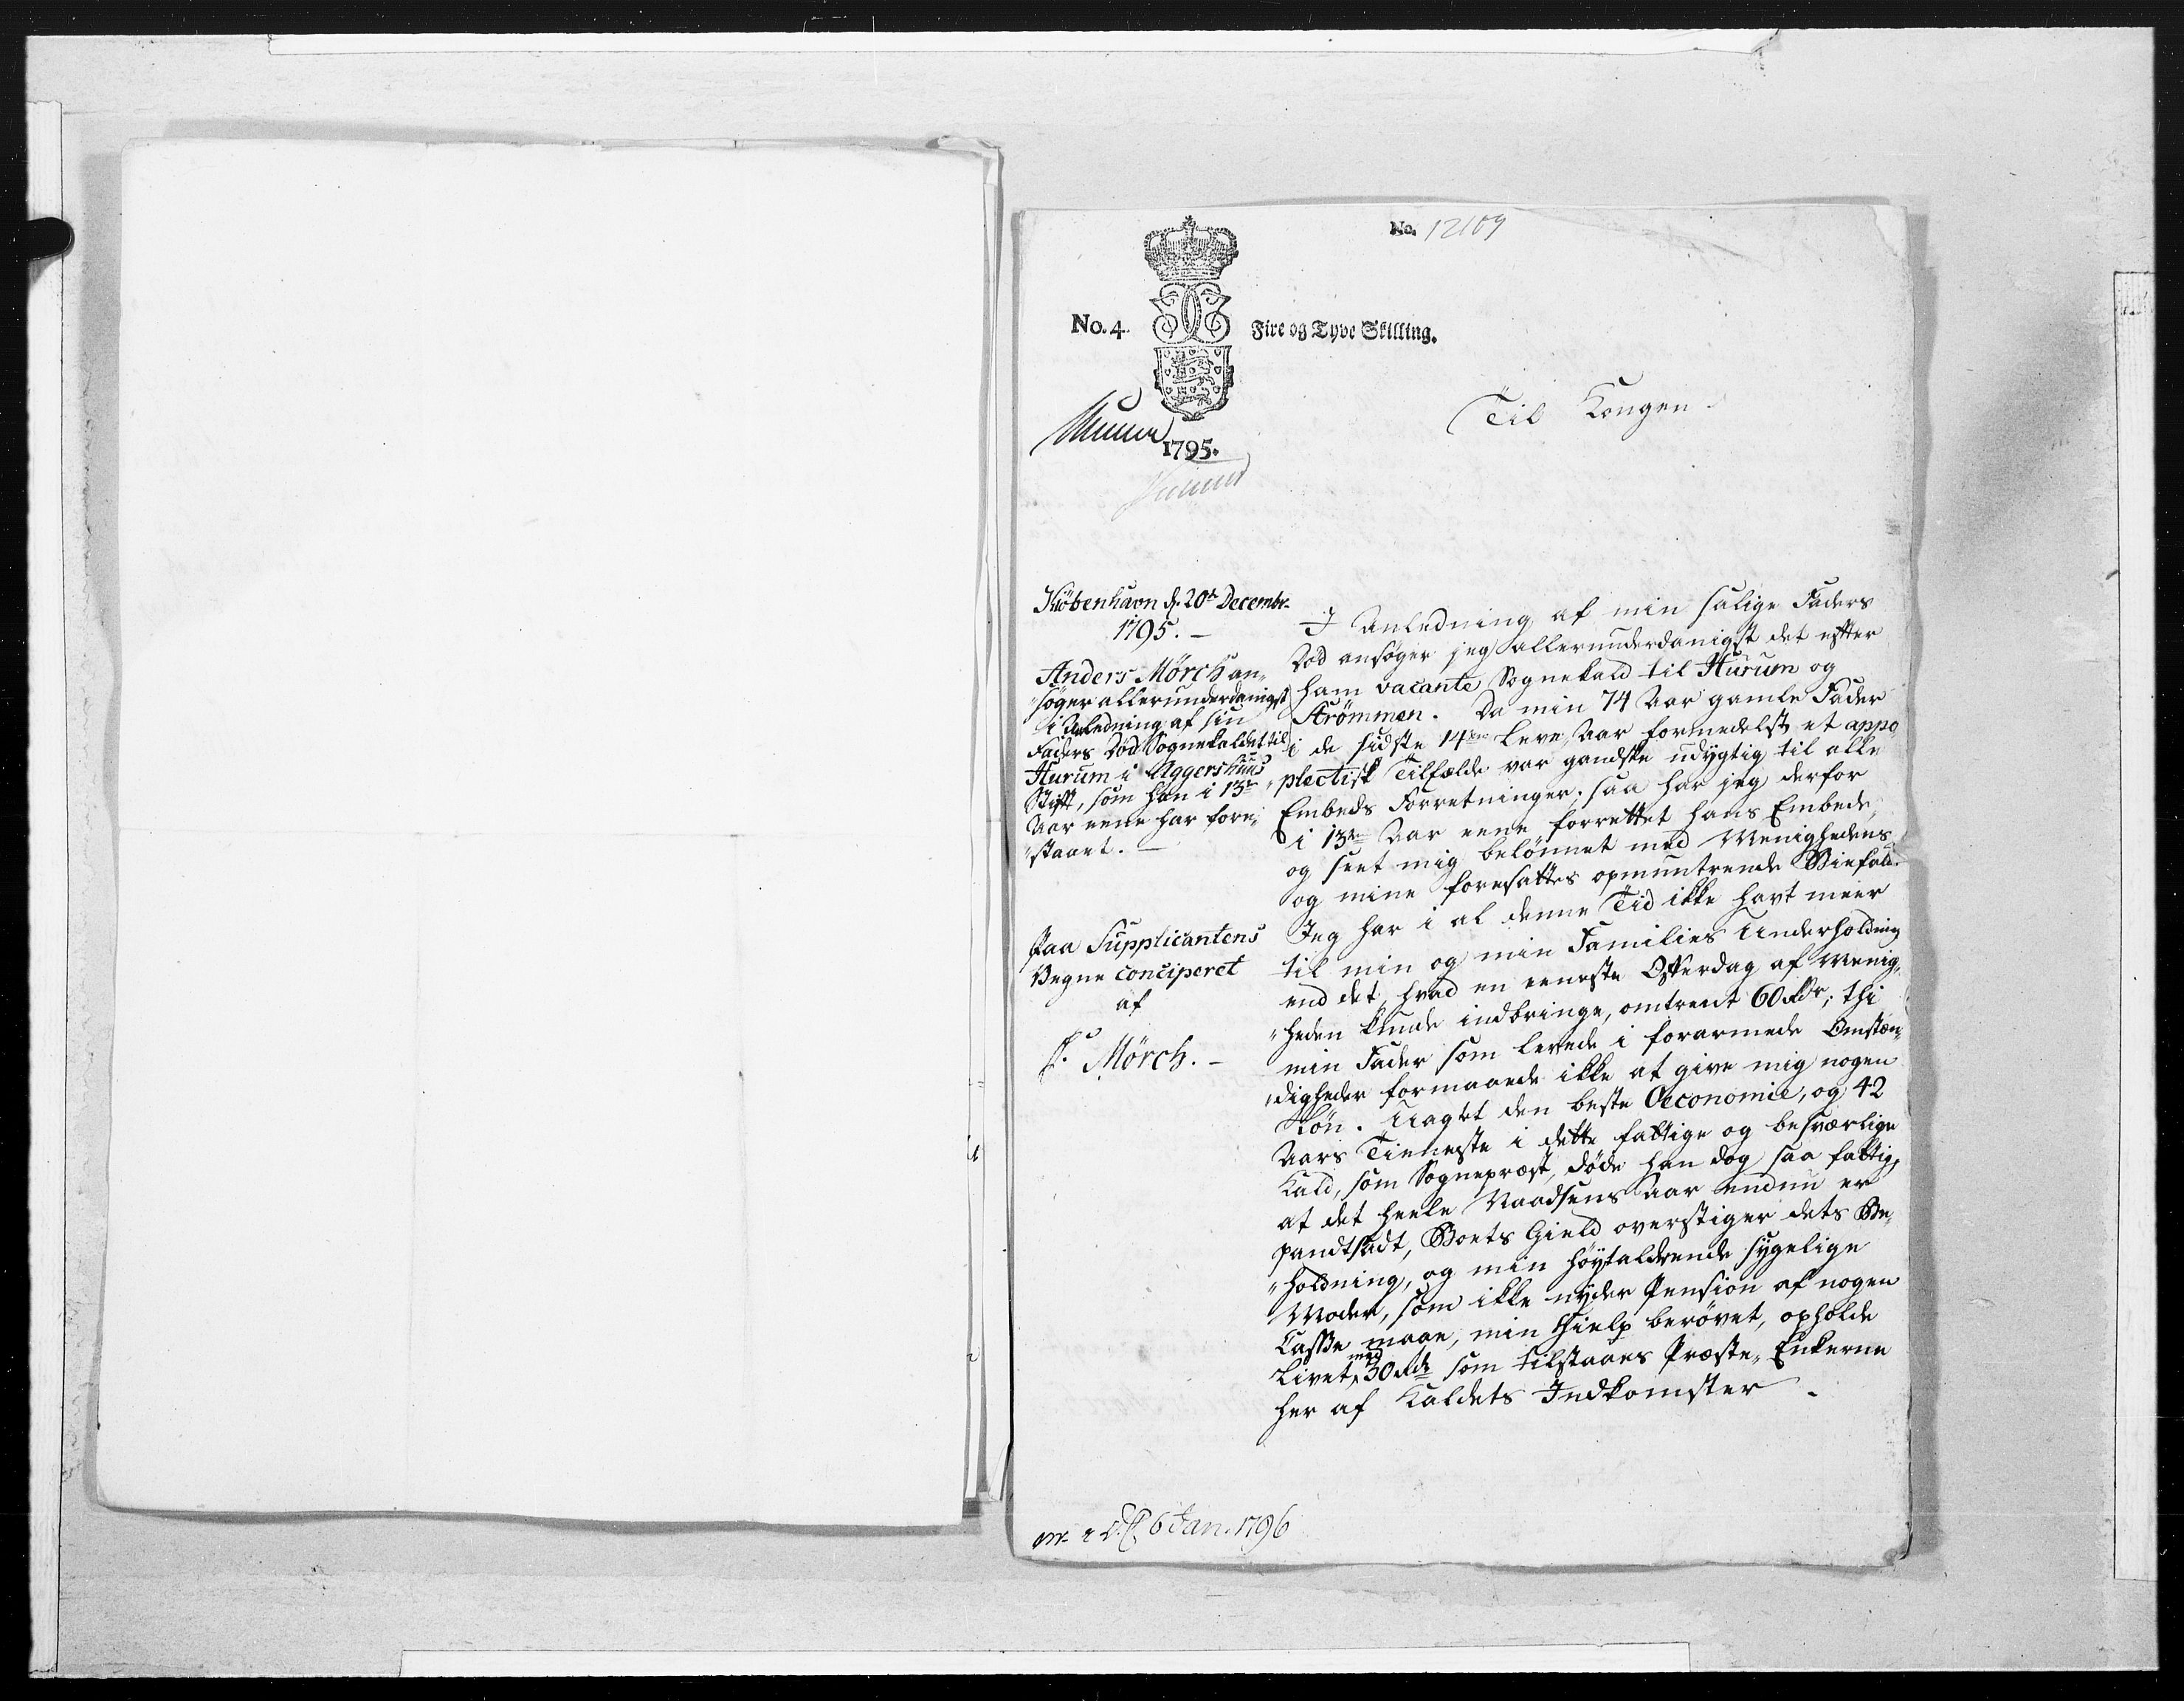 No. 12109
No. 4.
Fire og Tyve Skilling.
1795.
Til Kongen.
Kiöbenhavn d. 20de Decembr.
1795. -
Anders Mörch an-
"söger allerunderdanigst
i Anledning af sin
Faders Död Sognekaldet til
Hurum i Aggershuus
Stift, som han i 13
Aar eene har fore-
"staaet. -
Paa Supplicantens
Vegne conciperet
af
P. Mörch. -
I Anledning af min salige Faders
Död ansöger jeg allerunderdanigst det efter
ham vacante Sognekald til Hurum og
Strömmen. Da min 74 Aar gamle Fader
i de sidste 14ten Leve Aar formedelst et appo
"plectisk Tilfælde var gandske udygtig til alle
Embeds Forretninger; saa har jeg derfor
i 13 Aar eene forrettet hans Embede,
og seet mig belönnet med Menighedens
og mine foresattes opmuntrende Biefald.
Jeg har i al denne Tid ikke havt meer
til min og min Families Underholdning
end det, hvad en eeneste Offerdag af Menig-
"heden kunde indbringe, omtrent 60 Rdr; thi
min Fader som levede i forarmede Omstæn-
"digheder formaaede ikke at give mig nogen
Lön. Uagtet den beste Oeconomie, og 42
Aars Tienneste i dette fattige og besværlige
Kald, som Sognepræst, döde han dog saa fattig,
at det heele Naadsens Aar endnu er
pandtsadt, Boets Gield overstiger dets Be-
"holdning, og min höytaldrende sygelige
Moder, som ikke nyder Pension af nogen
Casse maae, min Hielp berövet, opholde
Livet med 30 Rdr som tilstaaes Præste-Enkerne
her af Kaldets Indkomster.
6 Jan. 1796